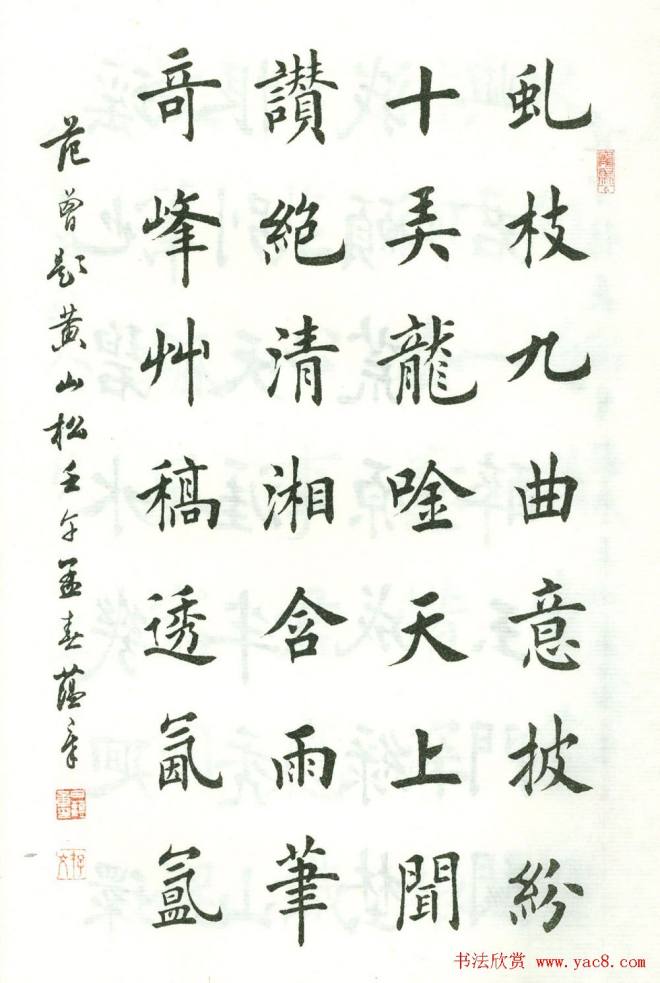 虬枝九曲意披紛
十美龍唫天上聞
讃絕清湘含雨筆
奇峰艸稿透氤氳
范曾題黄山松壬午孟春蕴章
书法欣赏 www.yac8.com